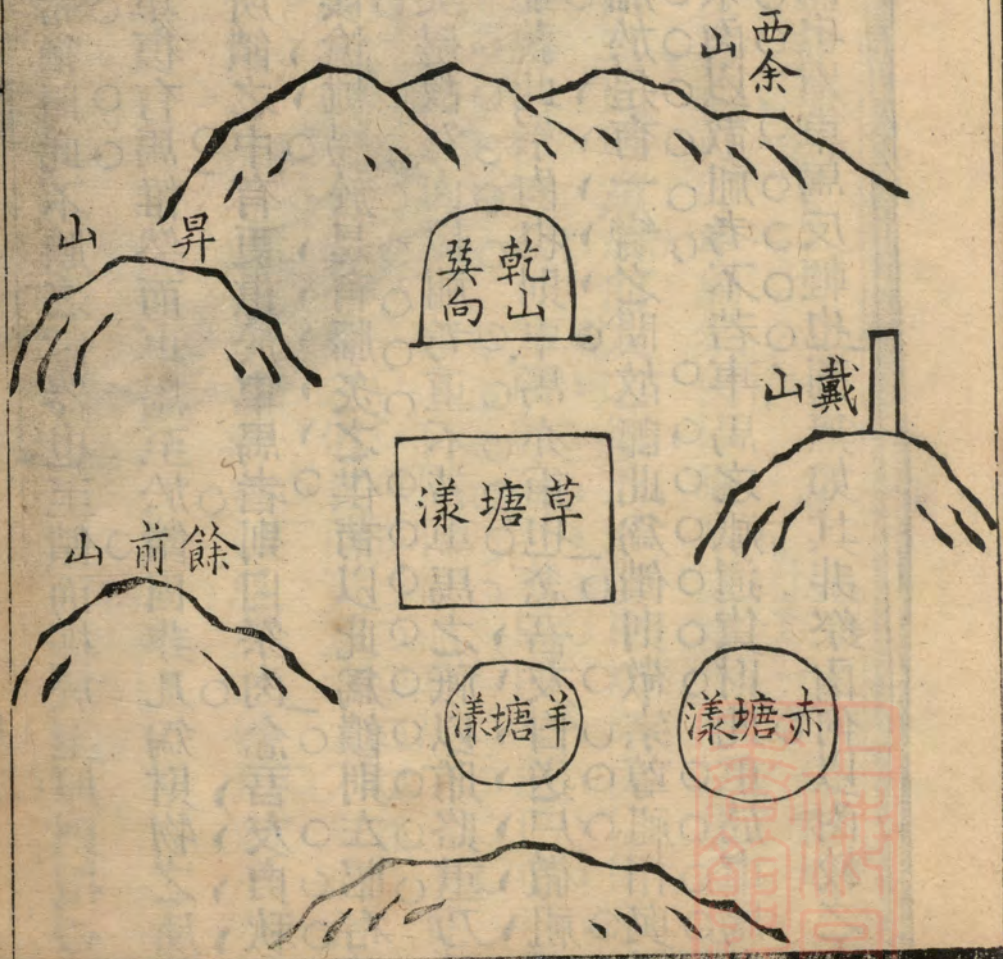 西余
山
昇
山
乾山
巽向
戴
山
草塘漾
餘前山
赤塘漾
羊塘漾